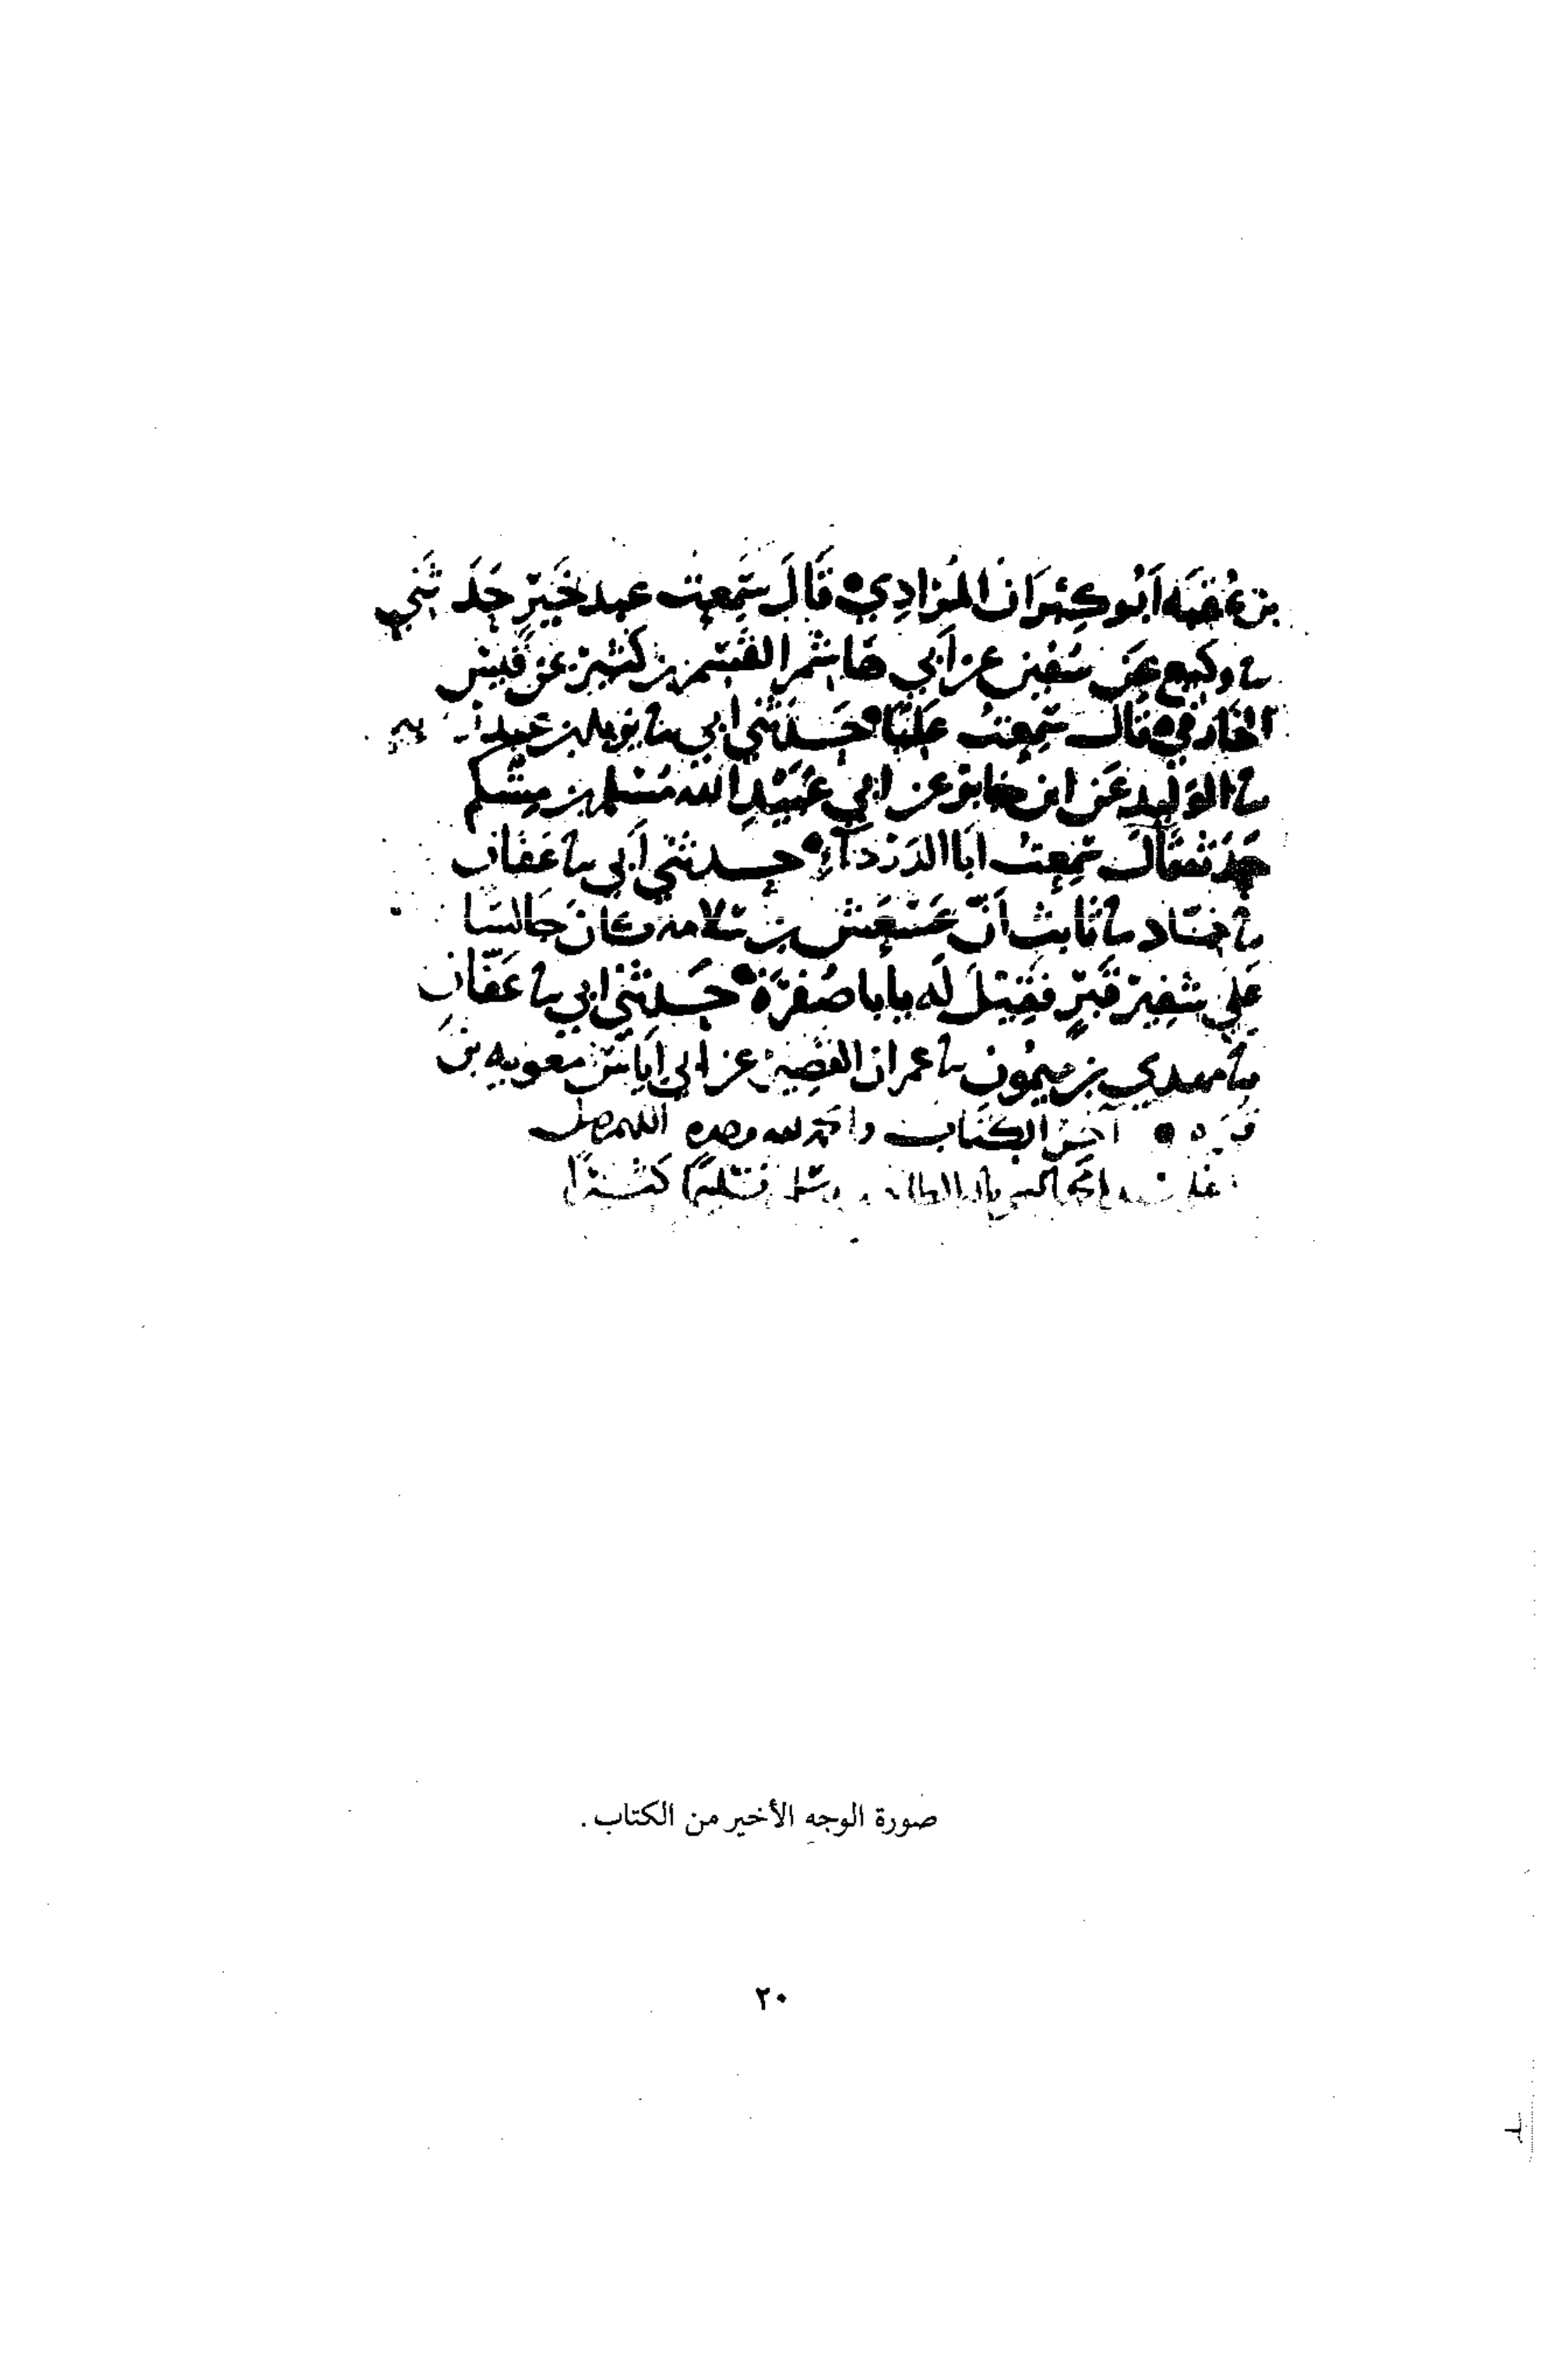 بن عُقبَه أبُو كِبْرَان المُرَادِي قَالَ سَمِعت عبد خَيْرٍ حَدَّثَني
نا وكيع عَن سُفين عن أبي هَاشم القسم بن كَثير عن قَيس
الخَارفي قال سَمِعتُ عَليًّا حَدثني ابي نا يزيد بن عبد
نا الوَليد عَن ابن جَابر عن ابي عُبَيْدِ الله مُسْلم بن مِشكم
حَدثه قال سَمِعتُ أبَا الدَرْدآءِ حدثني أبي نا عَفَّان
نا حماد نا ثَابت أنّ عَنْعَش بن سَلامه كانَ جَالسًا
عَلى شَفِيرِ قَبرٍ فَقِيلَ لَه يا با صُفرَة حَدثني ابي نا عَفَّان
نا مهدي بن ميمُون نا عمران القَصِير عن ابي إيَاس معويه بن
قره آخر الكتاب والحمد لله وحده اللهم صل
وسلم تسليمًا كثيرًا
صورة الوجه الأخير من الكتاب .
٢٠